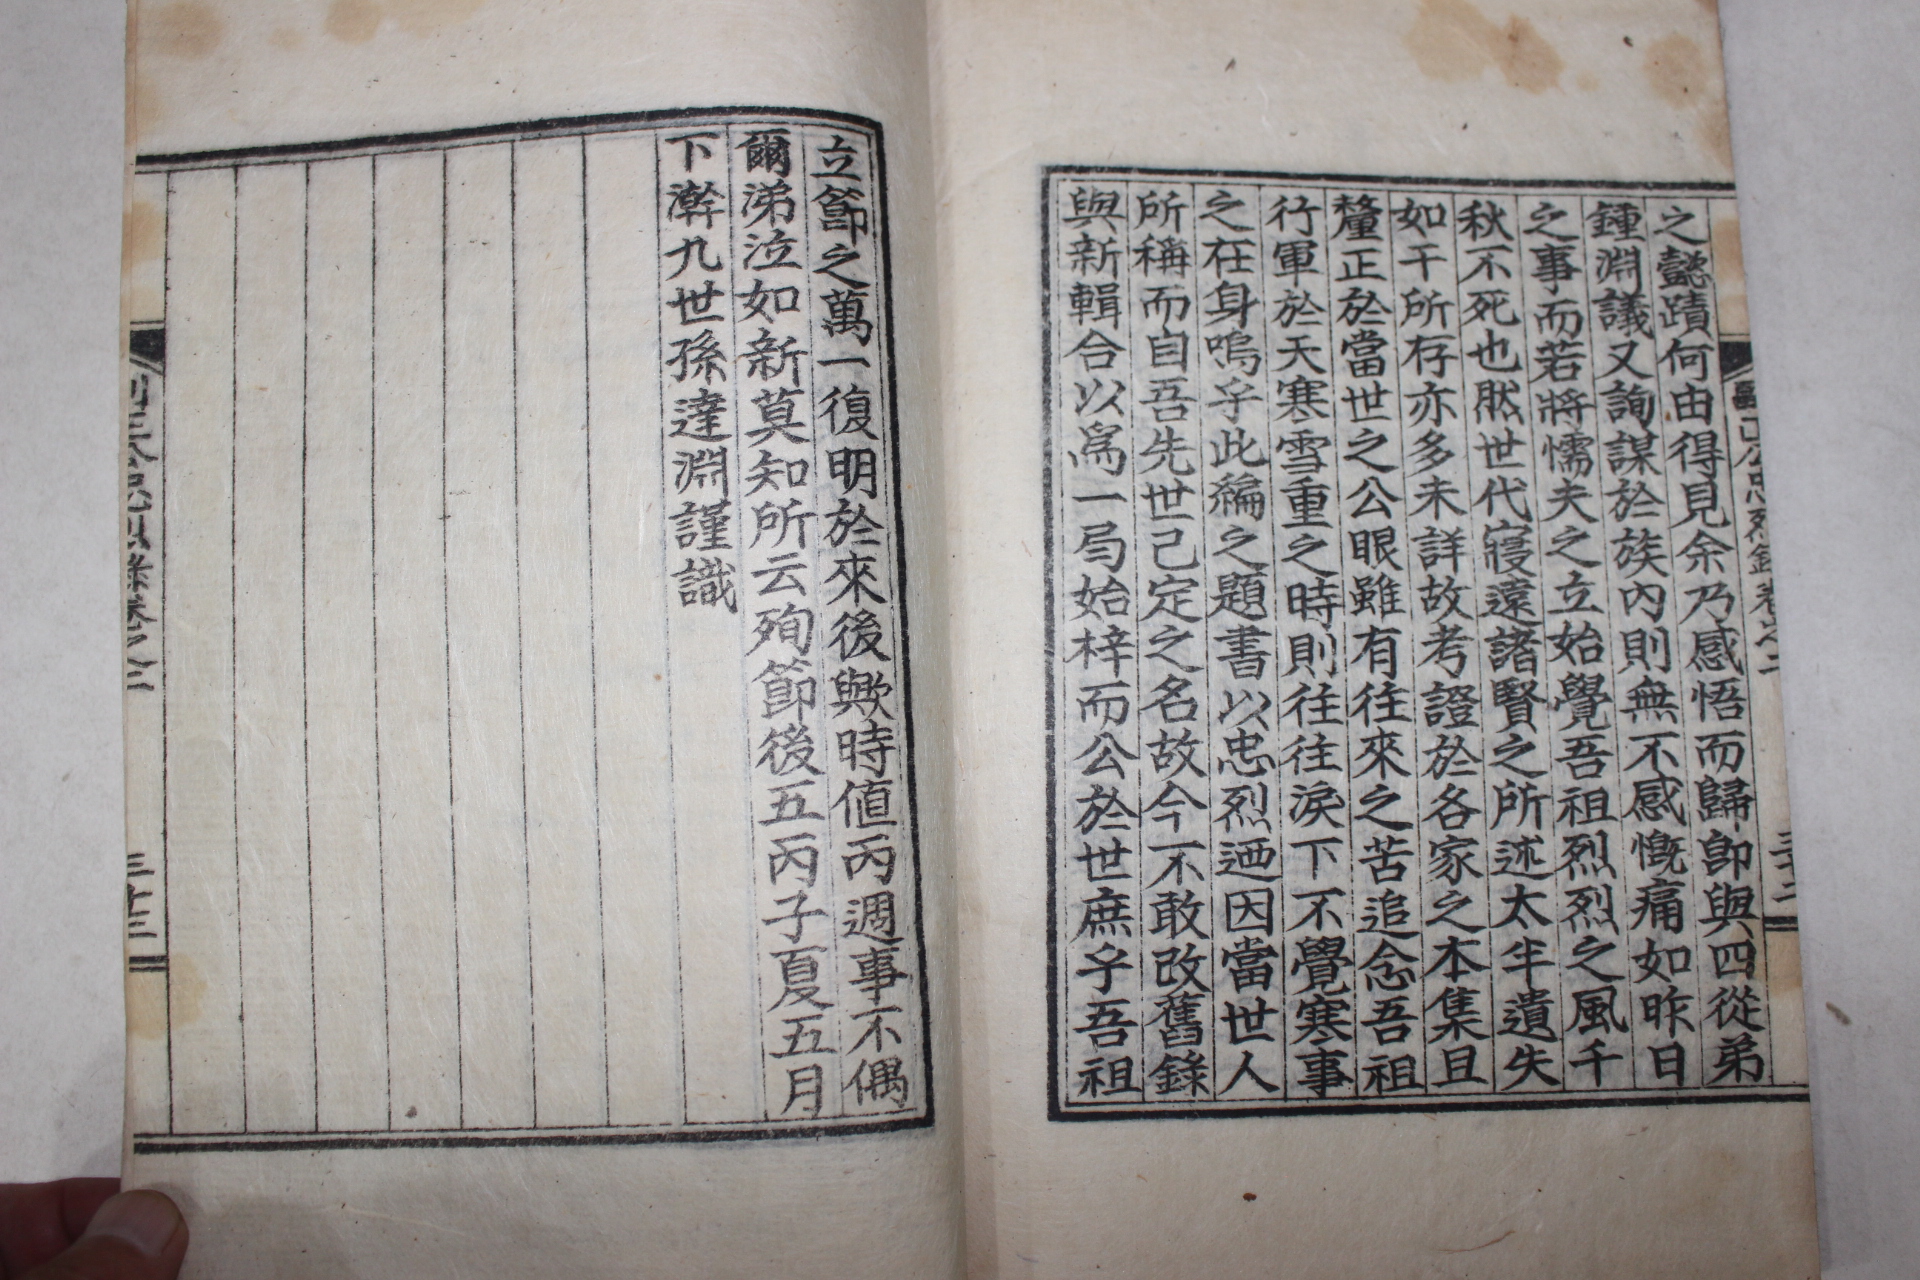 之懿蹟何由得見余乃感悟而歸卽與四從弟
鍾淵議又詢謀於族內則無不感慨痛如昨日
之事而若將懦夫之立始覺吾祖烈烈之風千
秋不死也然世代寢遠諸賢之所述太半遺失
如干所存亦多未詳故考證於各家之本集且
釐正於當世之公眼雖有往來之苦追念吾祖
行軍於天寒雪重之時則往往淚下不覺寒事
之在身嗚乎此編之題書以忠烈迺因當世人
所稱而自吾先世已定之名故今不敢改舊錄
與新輯合以爲一局始梓而公於世庶乎吾祖
立節之萬一復明於來後歟時値丙週事不偶
爾涕泣如新莫知所云殉節後五丙子夏五月
下澣九世孫達淵謹識
三十三